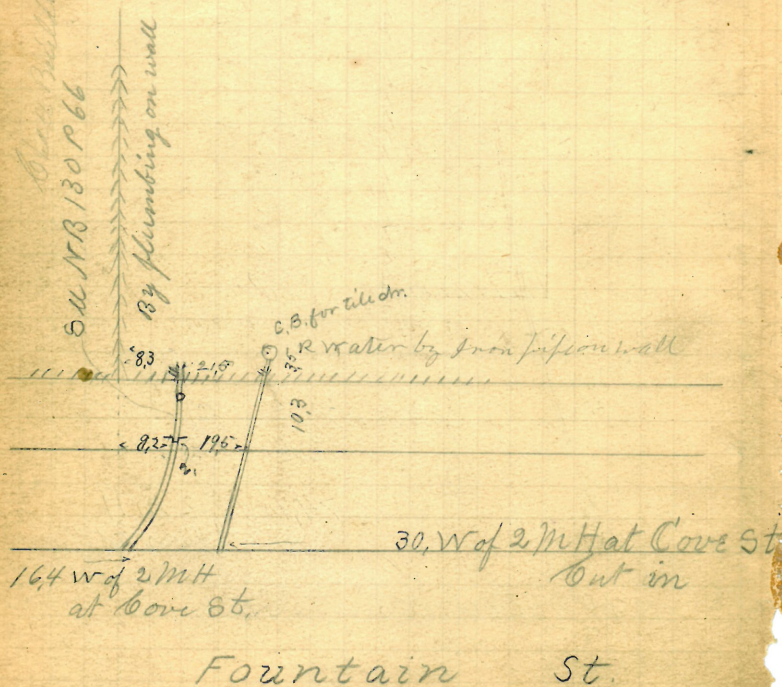 See NB 130 P 66
By plumbing on wall
C.B. for tile dr.
R water by Iron Pipe on wall
8,3
21,8
35
10,3
8,2
19,5
2,
30, W of 2 MH at Cove St
Cut in
16,4 W of 2 MH
at Cove St.
Fountain St.